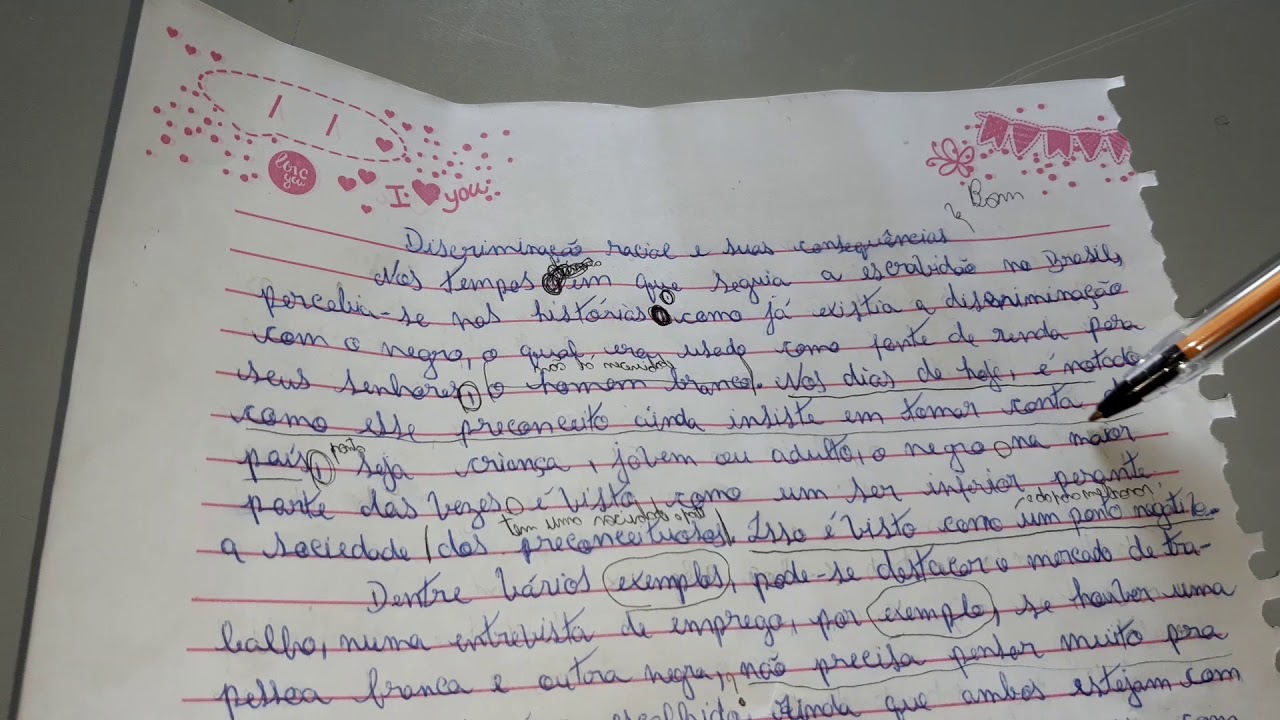 love you
I ♥ you
Bom
Discriminação racial e suas consequências
Nos tempos em que seguia a escravidão no Brasil,
percebia-se nas histórias como já existia a discriminação
com o negro, o qual era usado como fonte de renda para
não só necessidade
seus senhores, o homem branco. Nos dias de hoje, é notado
como esse preconceito ainda insiste em tomar conta
país, seja criança, jovem ou adulto, o negro na maior
ponto
parte das vezes é visto, como um ser inferior perante
tem uma sociedade
a sociedade dos preconceituosos. Isso é visto como um ponto negativo.
Dentre vários exemplos, pode-se destacar o mercado de tra-
balho, numa entrevista de emprego, por exemplo, se houver uma
pessoa branca e outra negra, não precisa pensar muito pra
escolhido. Ainda que ambos estejam com